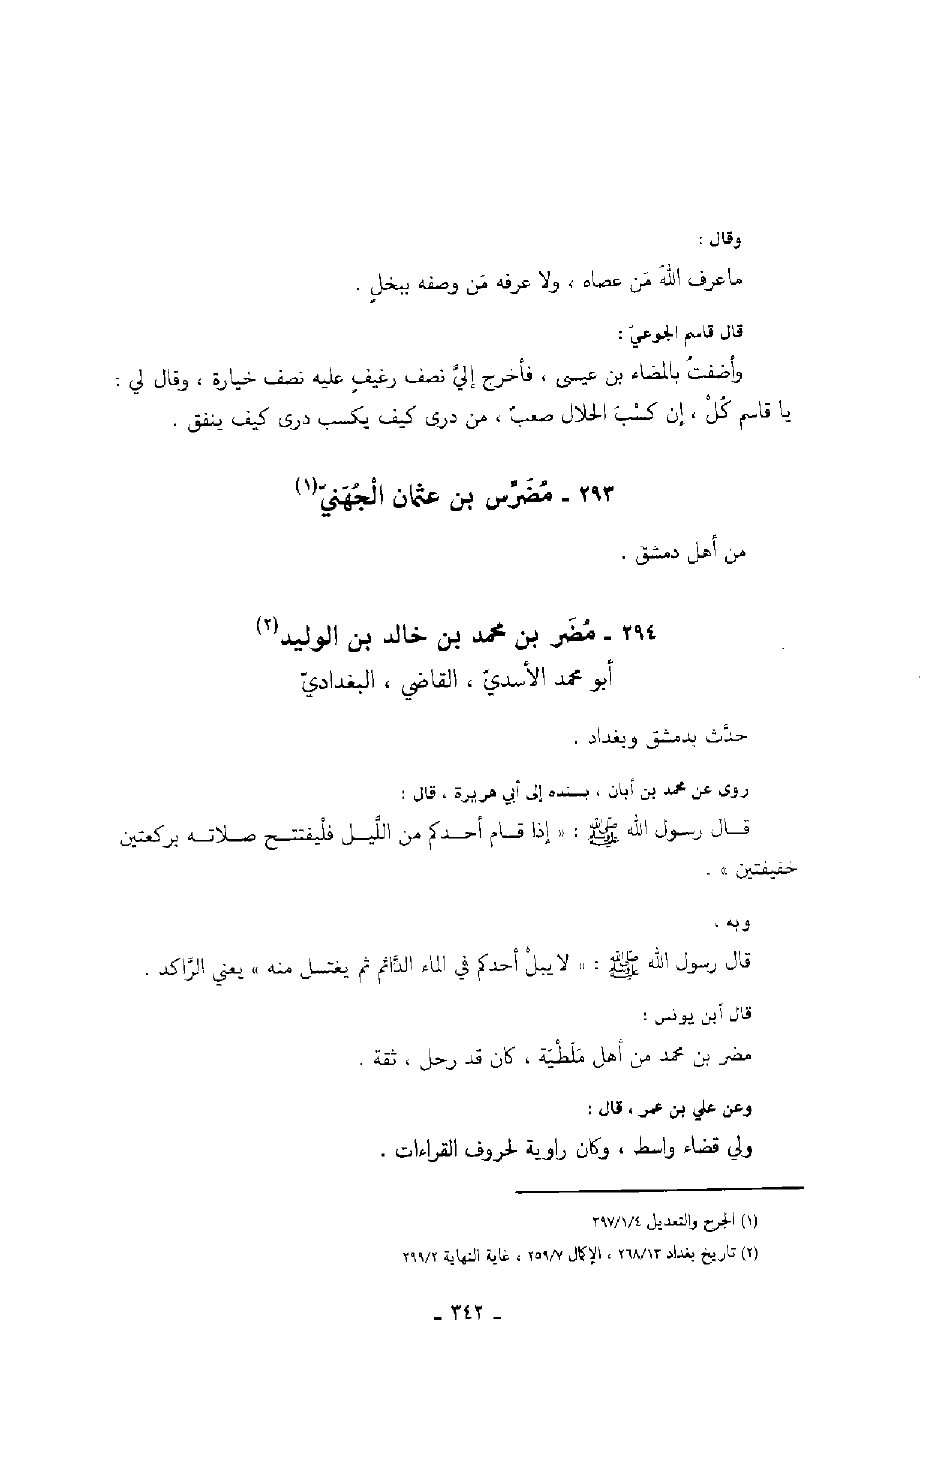 وقال :
ماعرف اللهَ مَن عصاه ، ولا عرفه مَن وصفه ببخلٍ .
قال قاسم الجوعيّ :
وأضفتُ بالمضاء بن عيسى ، فأخرج إليَّ نصف رغيفٍ عليه نصف خيارة ، وقال لي :
يا قاسم كُلْ ، إن كسْبَ الحلال صعبٌ ، من درى كيف يكسب درى كيف ينفق .
٢٩٣ ـ مُضَرِّس بن عثمان الْجُهَنيّ(١)
من أهل دمشق .
٢٩٤ ـ مُضَر بن محمد بن خالد بن الوليد(٢)
أبو محمد الأسديّ ، القاضي ، البغداديّ
حدَّث بدمشق وبغداد .
روى عن محمد بن أبان ، بسنده إلى أبي هريرة ، قال :
قال رسول الله ﷺ : « إذا قام أحدكم من اللَّيل فلْيفتتح صلاته بركعتين
خفيفتين » .
وبه ،
قال رسول الله ﷺ : « لا يبلْ أحدكم في الماء الدَّائم ثم يغتسل منه » يعني الرَّاكد .
قال أبن يونس :
مضر بن محمد من أهل مَلَطْيَة ، كان قد رحل ، ثقة .
وعن علي بن عمر ، قال :
ولي قضاء واسط ، وكان راوية لحروف القراءات .
(١) الجرح والتعديل ٣٩٧/١/٤
(٢) تاريخ بغداد ٢٦٨/١٣ ، الإكمال ٢٥٩/٧ ، غاية النهاية ٢٩٩/٢
ـ ٣٤٢ ـ